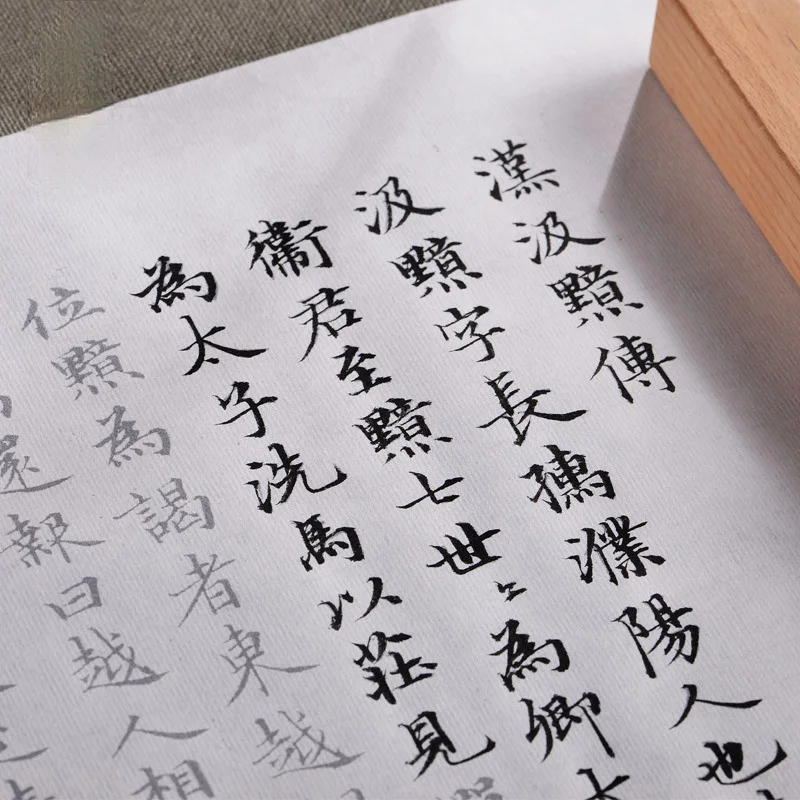 漢汲黯傳
汲黯字長孺濮陽人也
衞君至黯七世世為卿
為太子洗馬以莊見
位黯為謁者東越
還報曰越人相